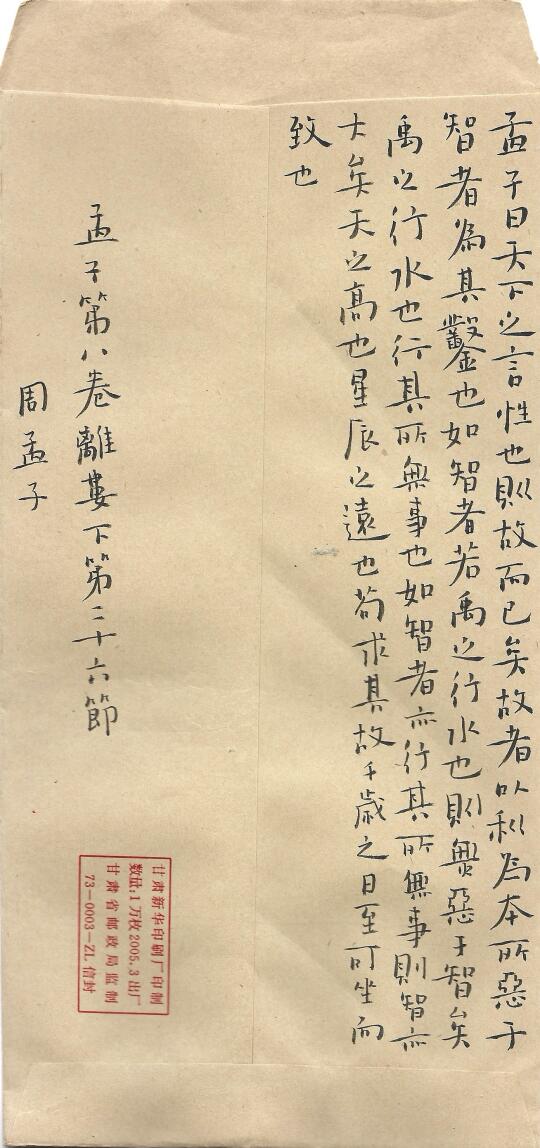 孟子曰天下之言性也則故而已矣故者以利為本所惡于
智者為其鑿也如智者若禹之行水也則無惡于智矣
禹之行水也行其所無事也如智者亦行其所無事則智亦
大矣天之高也星辰之遠也苟求其故千歲之日至可坐而
致也
孟子第八卷離婁下第二十六節
周孟子
甘肃新华印刷厂印制
数量:1万枚2005.3出厂
甘肃省邮政局监制
73-0003-ZL信封